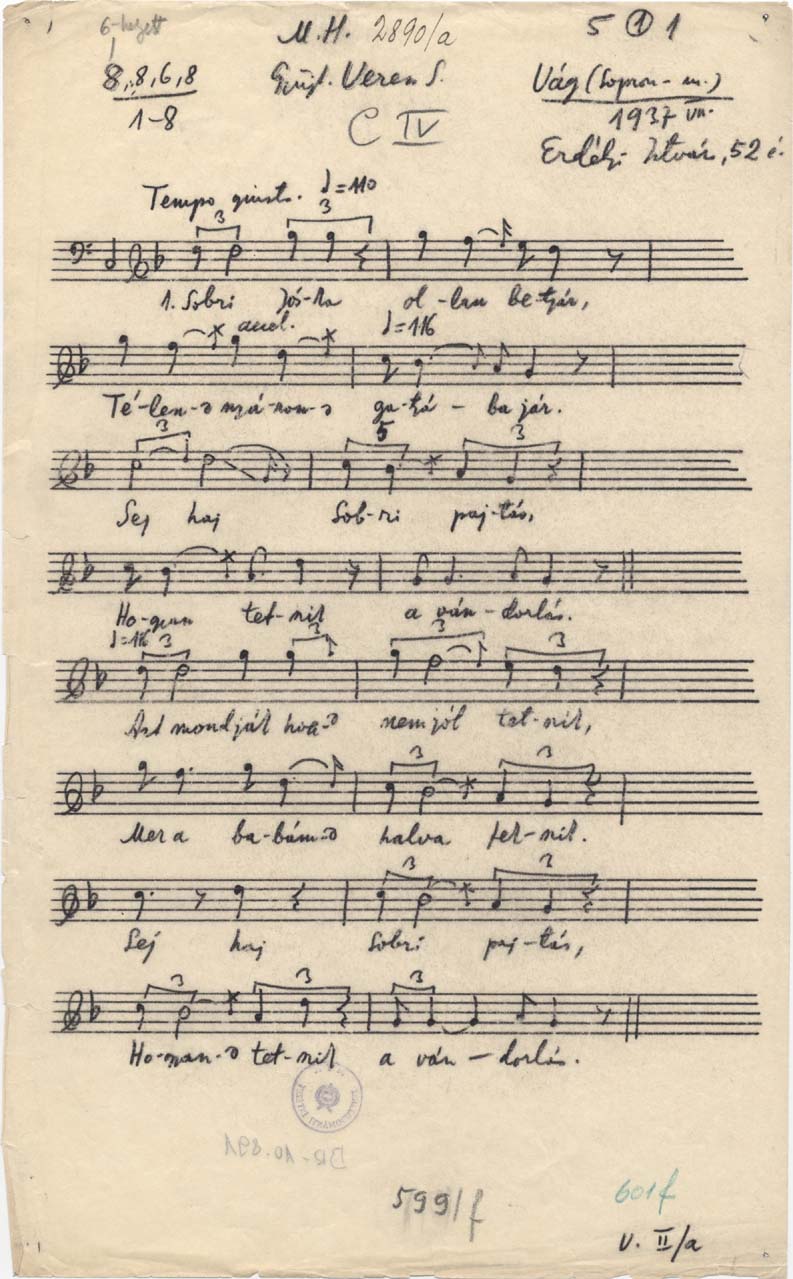 6-kezett
M.H. 2890/a
5 ① 1
8, 8, 6, 8
1-8
Gyűjt. Veress S.
C IV
Vág (Sopron-m.)
1937 VII.
Erdélyi István, 52 é.
Tempo giusto. ♩=110
3 3
1. Sobri Jós-ka ol-lan be-tyár,
accel. ♩=116
Té-len-ə nyá-ron-ə ga-tyá-ba jár.
3 5 3
Sej haj Sob-ri paj-tás,
Ho-gyan tet-nik a ván-dorlás.
♩=116 3 3 3 3
Azt mondják hogy-ə nem jól tet-nik,
3 3
Mer a ba-bám-ə halva fek-nik.
3 3
Sej haj Sobri paj-tás,
3 3 3
Ho-gyan-ə tet-nik a ván-dorlás.
BR-10.891
599/f
601f
V. II/a